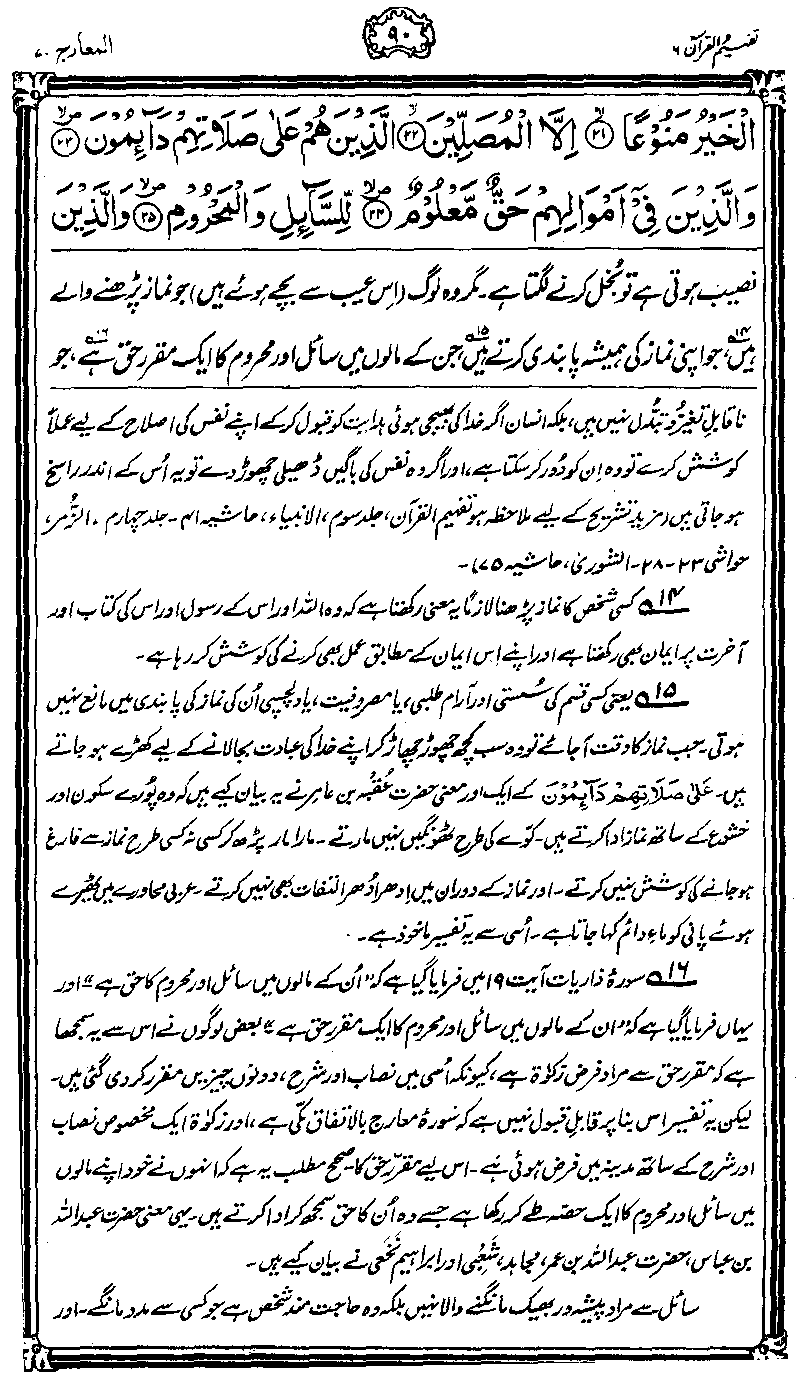 تفہیم القرآن ۶
۹۰
المعارج ۷۰
الْخَيْرُ مَنُوْعًا ﴿۲۱﴾ اِلَّا الْمُصَلِّيْنَ ﴿۲۲﴾ الَّذِيْنَ هُمْ عَلٰى صَلَاتِهِمْ دَآئِمُوْنَ ﴿۲۳﴾
وَالَّذِيْنَ فِيْٓ اَمْوَالِهِمْ حَقٌّ مَّعْلُوْمٌ ﴿۲۴﴾ لِّلسَّآئِلِ وَالْمَحْرُوْمِ ﴿۲۵﴾ وَالَّذِيْنَ
نصیب ہوتی ہے تو بُخل کرنے لگتا ہے۔ مگر وہ لوگ (اِس عیب سے بچے ہوئے ہیں) جو نماز پڑھنے والے
ہیں۱۴، جو اپنی نماز کی ہمیشہ پابندی کرتے ہیں۱۵، جن کے مالوں میں سائل اور محروم کا ایک مقرر حق ہے۱۶، جو
ناقابلِ تغیر و تبدّل نہیں ہیں، بلکہ انسان اگر خدا کی بھیجی ہوئی ہدایت کو قبول کرکے اپنے نفس کی اصلاح کے لیے عملاً
کوشش کرے تو وہ اِن کو دُور کر سکتا ہے، اور اگر وہ نفس کی باگیں ڈھیلی چھوڑ دے تو یہ اُس کے اندر راسخ
ہو جاتی ہیں (مزید تشریح کے لیے ملاحظہ ہو تفہیم القرآن، جلد سوم، الانبیاء، حاشیہ ۴۱۔ جلد چہارم، الزُّمر،
حواشی ۲۳-۲۸۔ الشوریٰ، حاشیہ ۷۵)۔
۱۴ کسی شخص کا نماز پڑھنا لازماً یہ معنی رکھتا ہے کہ وہ اللہ اور اس کے رسول اور اس کی کتاب اور
آخرت پر ایمان بھی رکھتا ہے اور اپنے اِس ایمان کے مطابق عمل بھی کرنے کی کوشش کر رہا ہے۔
۱۵ یعنی کسی قسم کی سُستی اور آرام طلبی، یا مصروفیت، یا دلچسپی اُن کی نماز کی پابندی میں مانع نہیں
ہوتی۔ جب نماز کا وقت آ جائے تو وہ سب کچھ چھوڑ چھاڑ کر اپنے خدا کی عبادت بجا لانے کے لیے کھڑے ہو جاتے
ہیں۔ عَلٰى صَلَاتِهِمْ دَآئِمُوْنَ کے ایک اور معنی حضرت عُقبہ بن عامر نے یہ بیان کیے ہیں کہ وہ پُورے سکون اور
خشوع کے ساتھ نماز ادا کرتے ہیں۔ کوّے کی طرح ٹھونگیں نہیں مارتے۔ مارا مار پڑھ کر کسی نہ کسی طرح نماز سے فارغ
ہو جانے کی کوشش نہیں کرتے۔ اور نماز کے دوران میں اِدھر اُدھر التفات بھی نہیں کرتے۔ عربی محاورے میں ٹھیرے
ہوئے پانی کو ماءِ دائم کہا جاتا ہے۔ اُسی سے یہ تفسیر ماخوذ ہے۔
۱۶ سورۂ ذاریات آیت ۱۹ میں فرمایا گیا ہے کہ ”اُن کے مالوں میں سائل اور محروم کا حق ہے“ اور
یہاں فرمایا گیا ہے کہ ”ان کے مالوں میں سائل اور محروم کا ایک مقرر حق ہے“ بعض لوگوں نے اس سے یہ سمجھا
ہے کہ مقرر حق سے مراد فرض زکوٰۃ ہے، کیونکہ اُسی میں نصاب اور شرح، دونوں چیزیں مقرر کر دی گئی ہیں۔
لیکن یہ تفسیر اس بنا پر قابلِ قبول نہیں ہے کہ سُورۂ معارج بالاتفاق مکّی ہے، اور زکوٰۃ ایک مخصوص نصاب
اور شرح کے ساتھ مدینہ میں فرض ہوئی ہے۔ اس لیے مقرّر حق کا صحیح مطلب یہ ہے کہ انہوں نے خود اپنے مالوں
میں سائل اور محروم کا ایک حصہ طے کر رکھا ہے جسے وہ اُن کا حق سمجھ کر ادا کرتے ہیں۔ یہی معنی حضرت عبداللہ
بن عباس، حضرت عبداللہ بن عمر، مجاہد، شَعْبِی اور ابراہیم نَخَعی نے بیان کیے ہیں۔
سائل سے مراد پیشہ ور بھیک مانگنے والا نہیں بلکہ وہ حاجت مند شخص ہے جو کسی سے مدد مانگے۔ اور